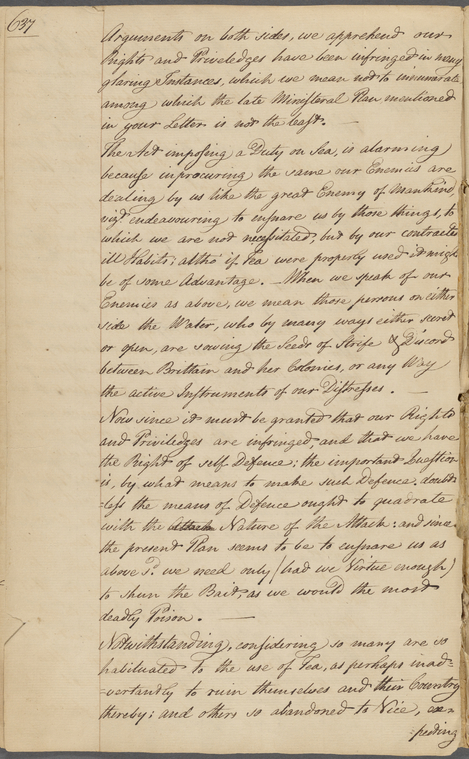 637
Arguments on both sides, we apprehend our
Rights and Priveledges have been infringed in many
glaring Instances, which we mean not to innumerate
among which the late Ministeral Plan mentioned
in your Letter is not the least. —
The Act imposing a Duty on Tea, is alarming
because in procuring the same our Enemies are
dealing by us like the great Enemy of Mankind,
vizt. endeavouring to ensnare us by those things, to
which we are not necessitated, but by our contracted
ill Habits; altho' if Tea were properly used it might
be of some Advantage. — When we speak of our
Enemies as above, we mean those persons on either
side the Water, who by many ways either secret
or open, are sowing the Seeds of Strife & Discord
between Brittain and her Colonies, or any Way
the active Instruments of our Distresses. —
Now since it must be granted that our Rights
and Priviledges are infringed, and that we have
the Right of self Defence; the important Question
is, by what means to make such Defence. doubt-
-less the means of Defence ought to quadrate
with the attack Nature of the Attack; and since
the present Plan seems to be to ensnare us as
above sd. we need only (had we Virtue enough)
to shun the Bait, as we would the most
deadly Poison. —
Notwithstanding, considering so many are so
habituated to the use of Tea, as perhaps inad-
-vertantly to ruin themselves and their Country
thereby; and others so abandoned to Vice, ex-
-pecting